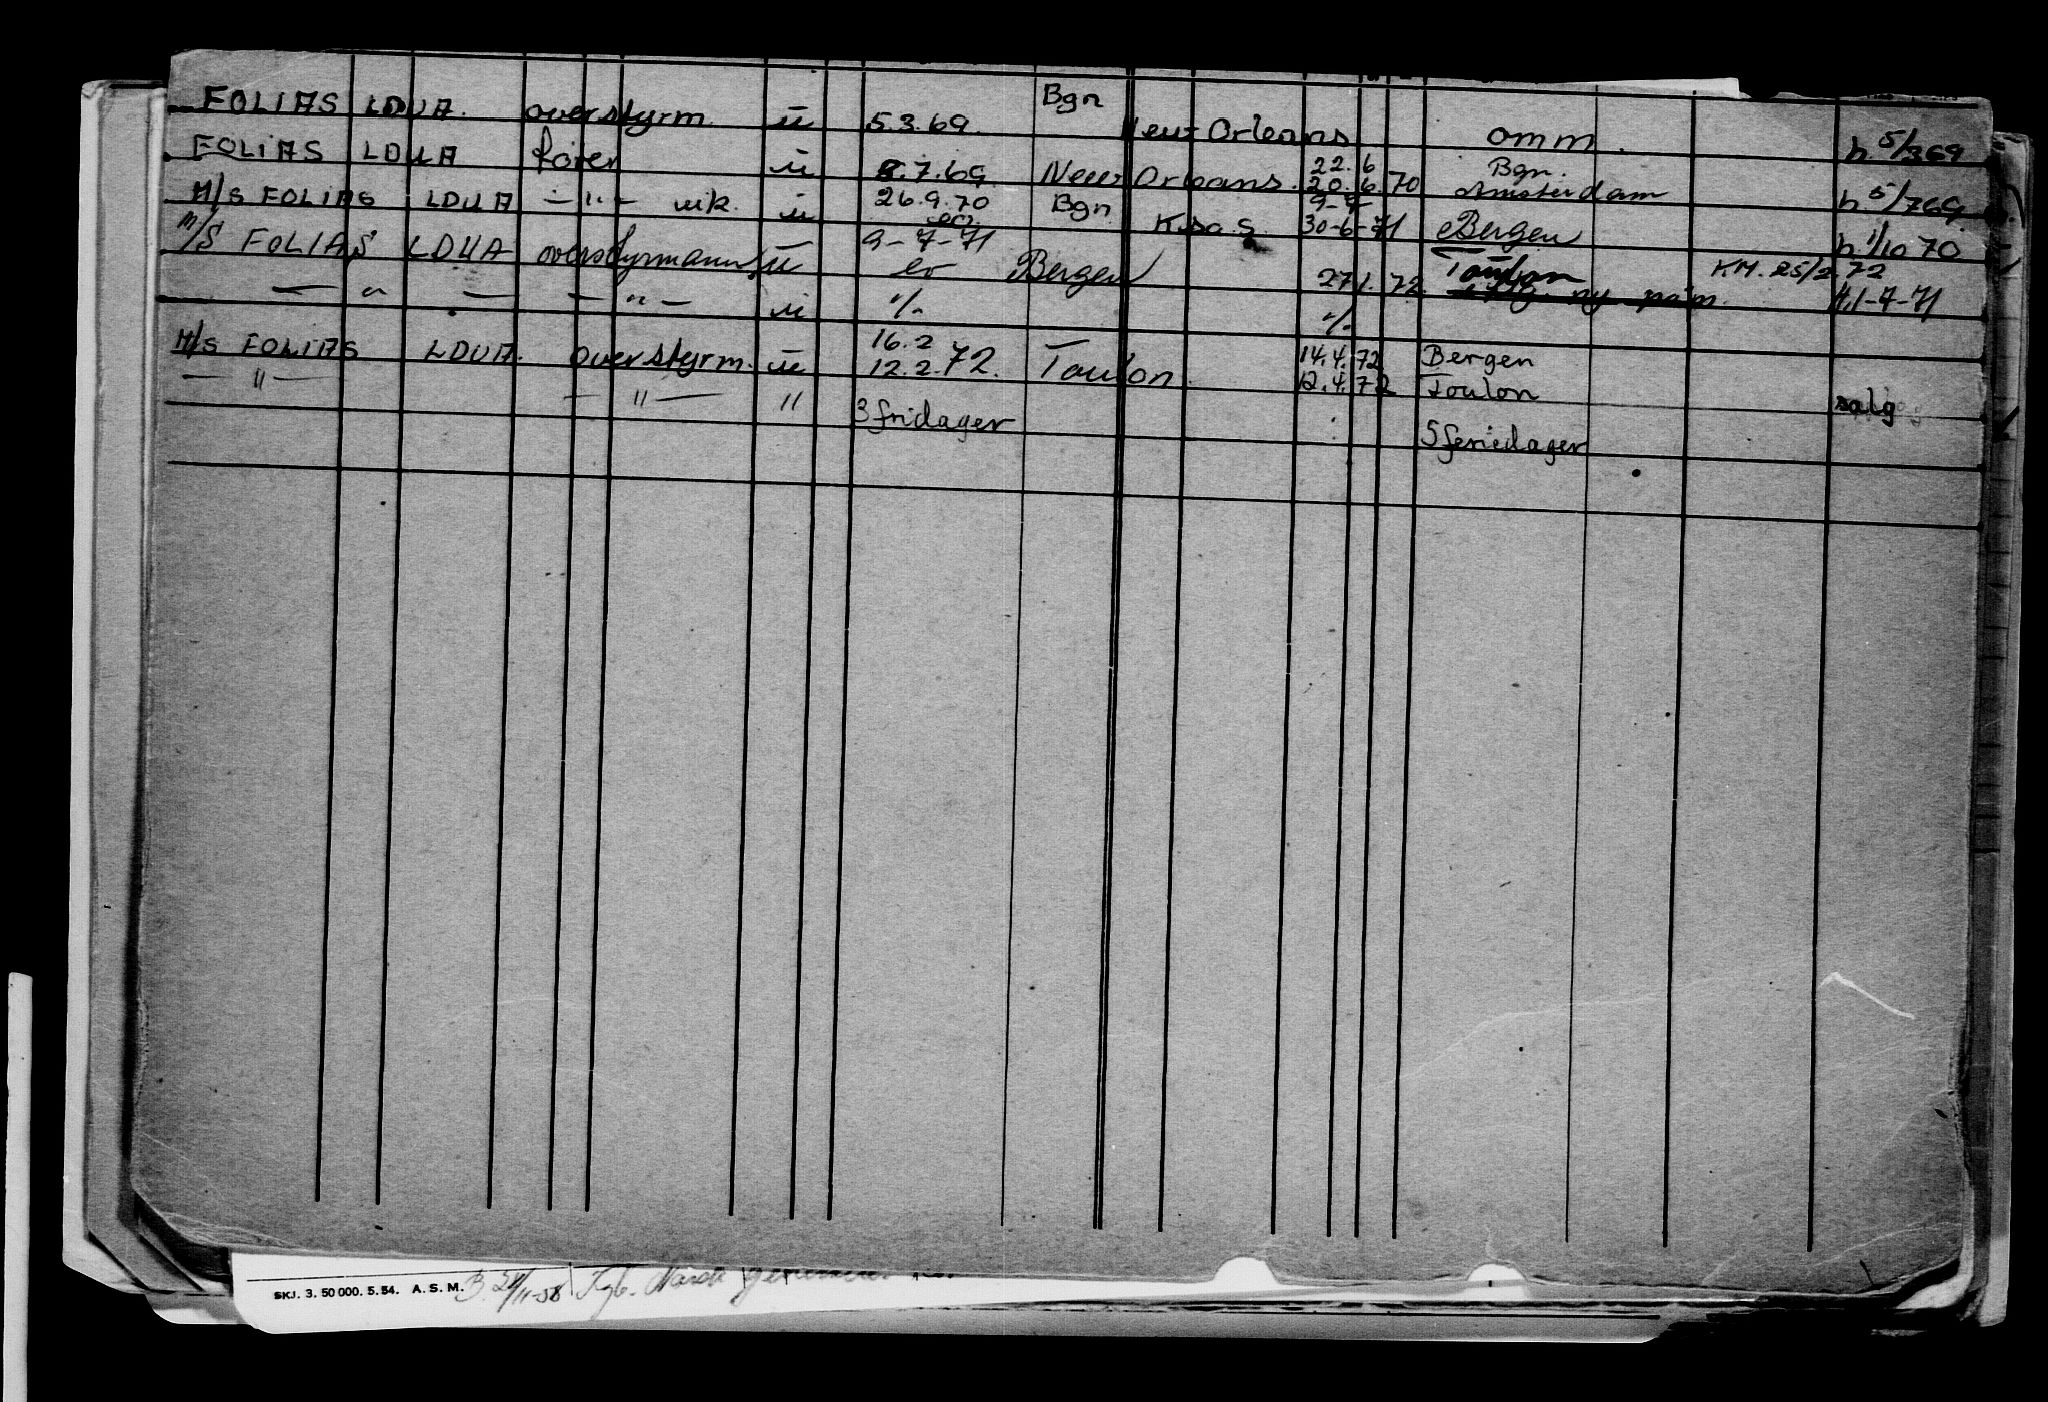 FOLIAS LDUA. overstyrm. u 5.3.69. Bgn New Orleans omm. h. 5/3 69
FOLIAS LDUA fører u 8.7.69 New Orleans. 22.6 20.6.70 Bgn. Amsterdam h. 5/7 69
M/S FOLIAS LDUA — " — u 26.9.70 Bgn K.sa.S. 9-7 30-6-71 Bergen h 1/10 70
M/S FOLIAS LDUA overstyrmann u 9-7-71 Bergen 27 1. 72. Toulon ny KM. 25/2 72
— " — — " — u "/. "/. H.1-7-71
M/S FOLIAS LDUA. overstyrm. u 16.2 12.2.72. Toulon 14.4.72 12.4.72 Bergen Toulon
— " — — " — " 3 fridager 5 feriedager salg
SKJ. 3. 50 000. 5. 54. A. S. M. Norsk